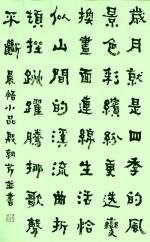 歲月就是四季的風
景色彩繽紛更迭變
換畫面連綿生活恰
似山間的溪流曲折
頓挫跳躍騰挪歌聲
不斷 晨悟小品 朝芳並書